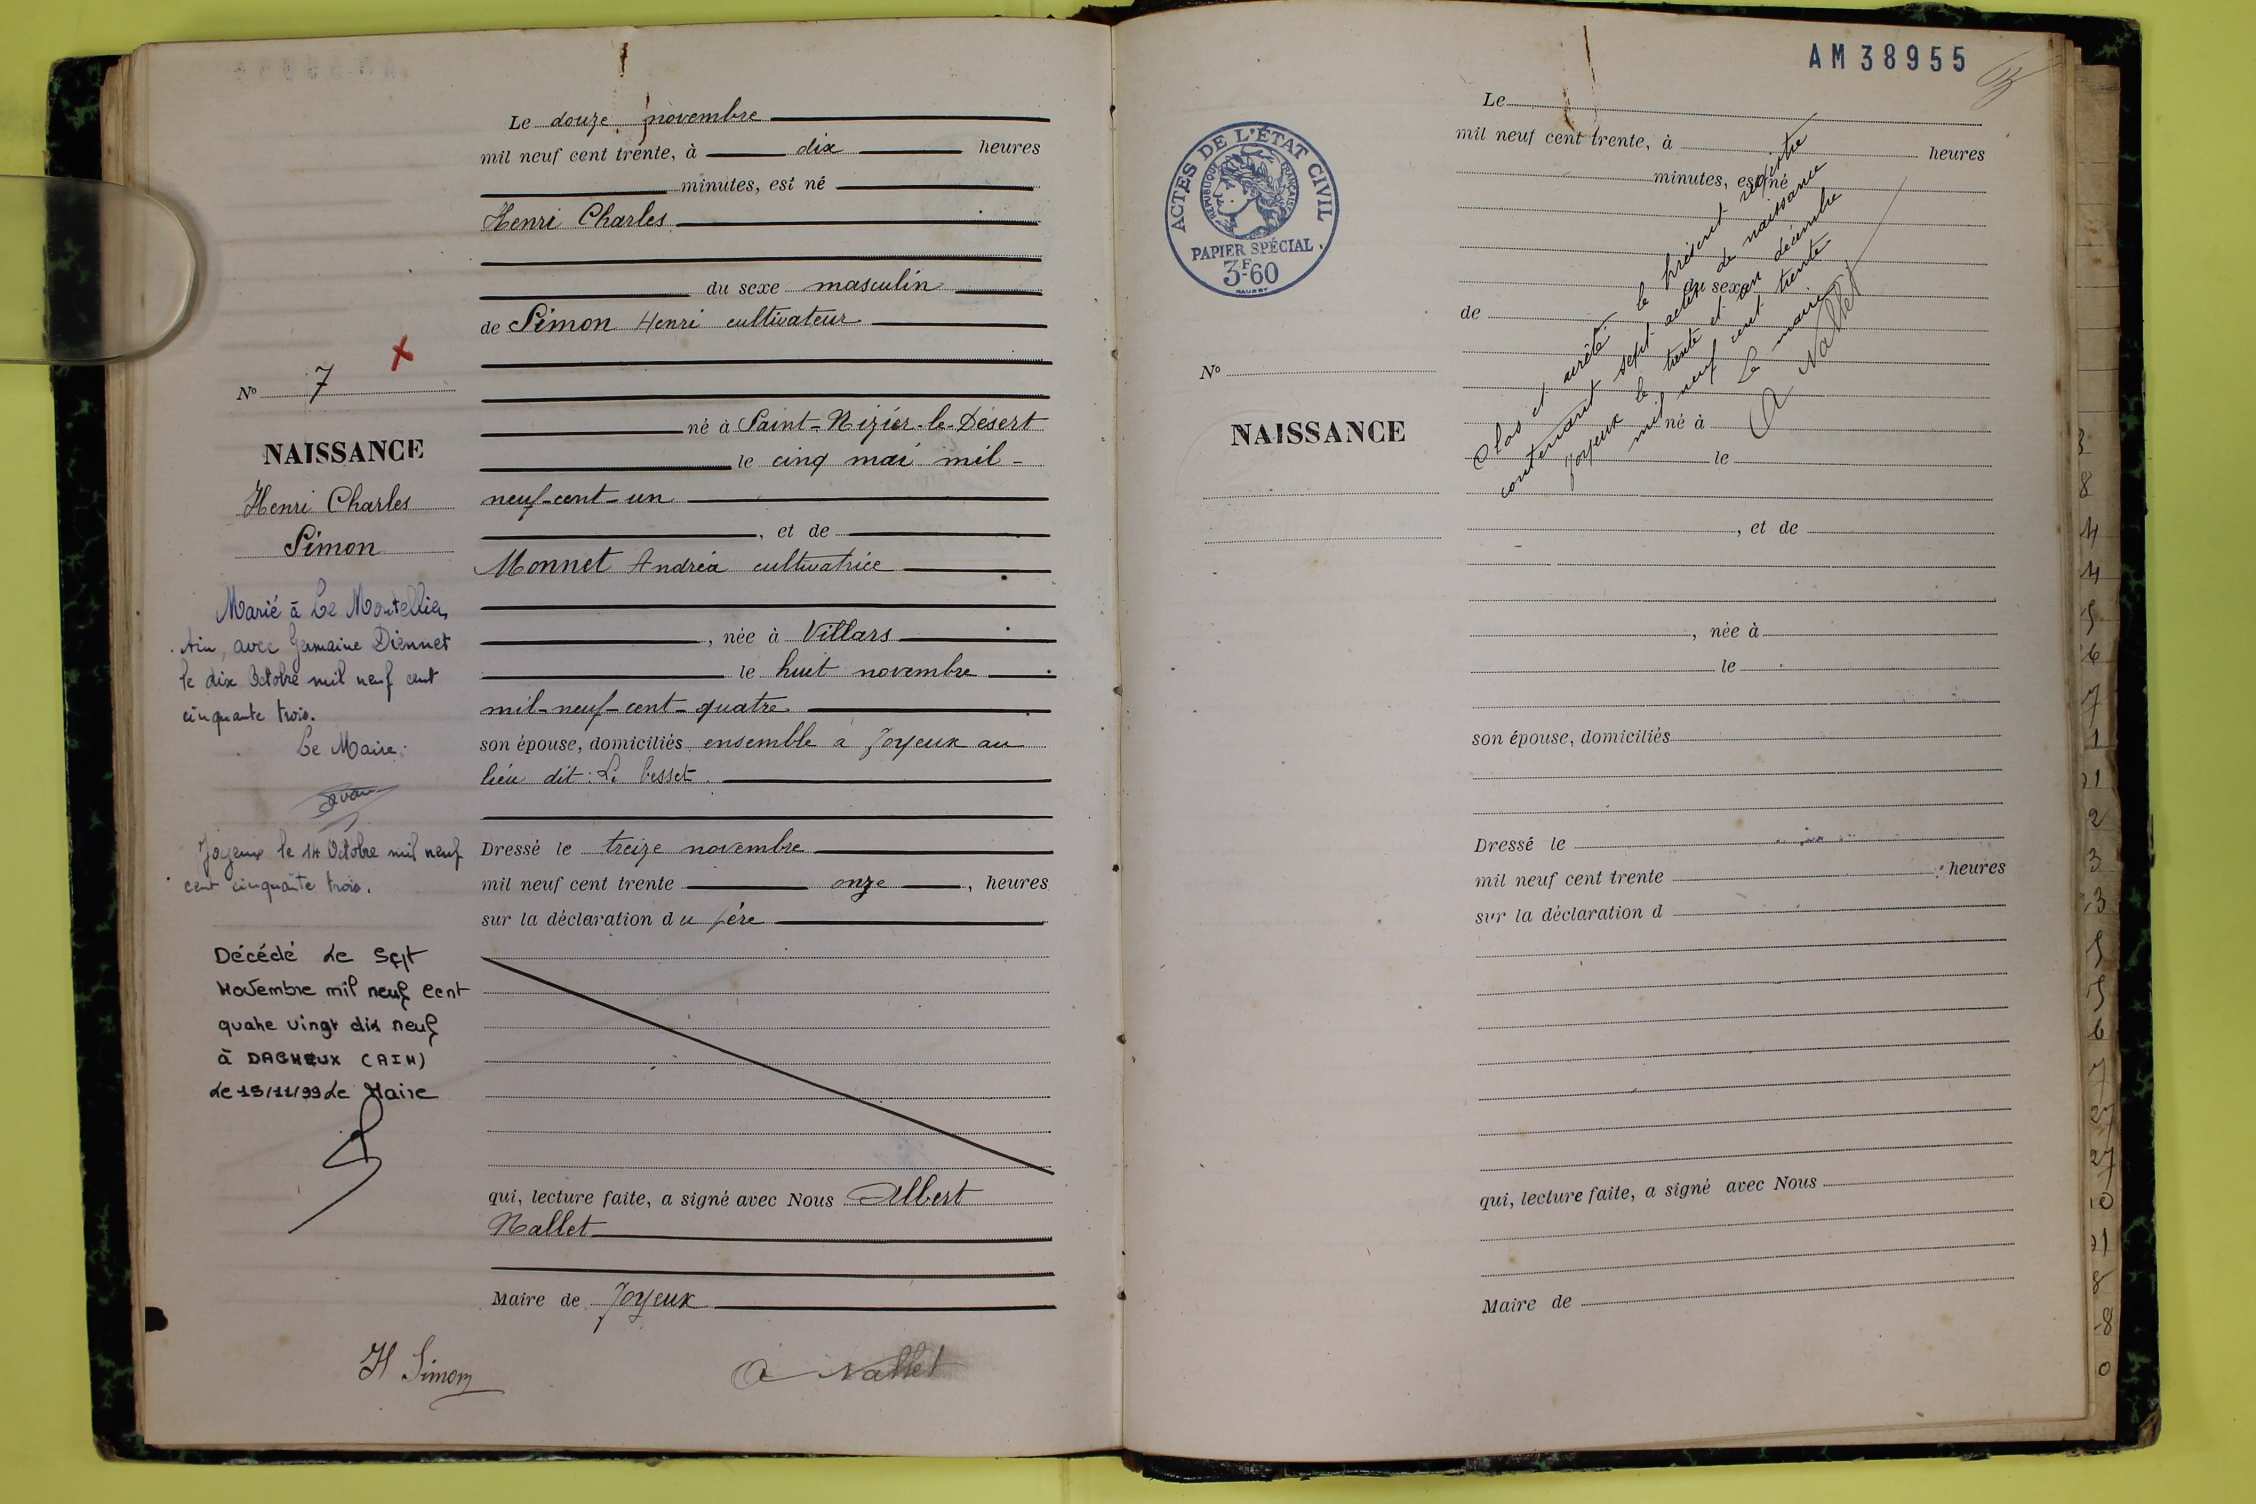 Le douze novembre
mil neuf cent trente, à dix heures
minutes, est né
Henri Charles
du sexe masculin
de Simon Henri cultivateur
né à Saint-Nizier-le-Désert
le cinq mai mil-
neuf-cent-un
, et de
Monnet Andréa cultivatrice
, née à Villars
le huit novembre
mil-neuf-cent-quatre
son épouse, domiciliés ensemble à Joyeux au
lieu dit: Le Besset.
Dressé le treize novembre
mil neuf cent trente onze, heures
sur la déclaration du père
qui, lecture faite, a signé avec Nous Albert
Nallet
Maire de Joyeux
H Simon
A Nallet
N° 7
NAISSANCE
Henri Charles
Simon
Marié à Le Montellier,
Ain, avec Germaine Diennet
le dix Octobre mil neuf cent
cinquante trois.
Le Maire:
Joyeux le 14 Octobre mil neuf
cent cinquante trois.
Décédé Le Sept
Novembre mil neuf cent
quatre vingt dix neuf
à DAGNEUX (AIN)
Le 15/11/99 Le Maire
AM38955
ACTES DE L'ÉTAT CIVIL
RÉPUBLIQUE FRANÇAISE
PAPIER SPÉCIAL.
3F60
N°
NAISSANCE
Le
mil neuf cent trente, à heures
minutes, est né
du sexe
de
né à
le
, et de
, née à
le
son épouse, domiciliés
Dressé le
mil neuf cent trente heures
sur la déclaration d
qui, lecture faite, a signé avec Nous
Maire de
Clos et arrêté le présent registre
contenant sept actes de naissance
Joyeux le trente et un décembre
mil neuf cent trente
Le maire
A Nallet
3
8
4
4
5
6
7
1
11
2
3
3
5
5
6
7
27
27
10
8
8
0